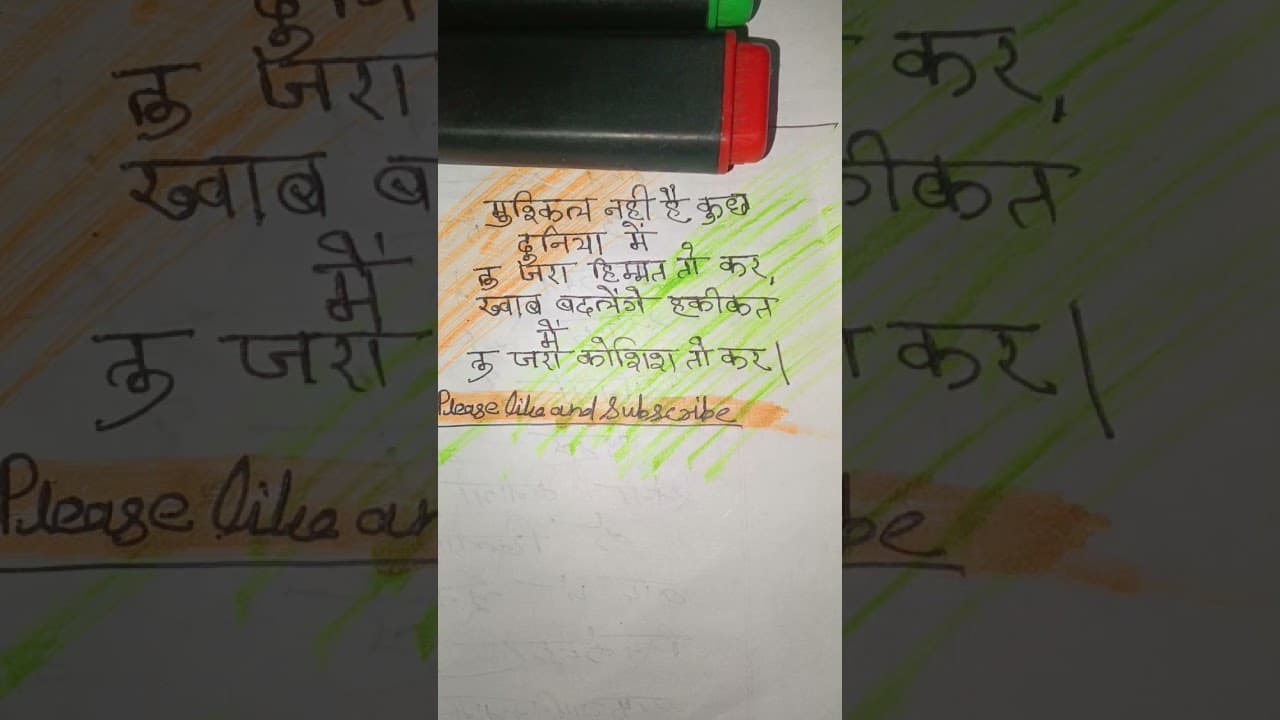 मुश्किल नही है कुछ
दुनिया में
तु जरा हिम्मत तो कर,
ख्वाब बदलेंगे हकीकत
में
तु जरा कोशिश तो कर।
Please like and Subscribe